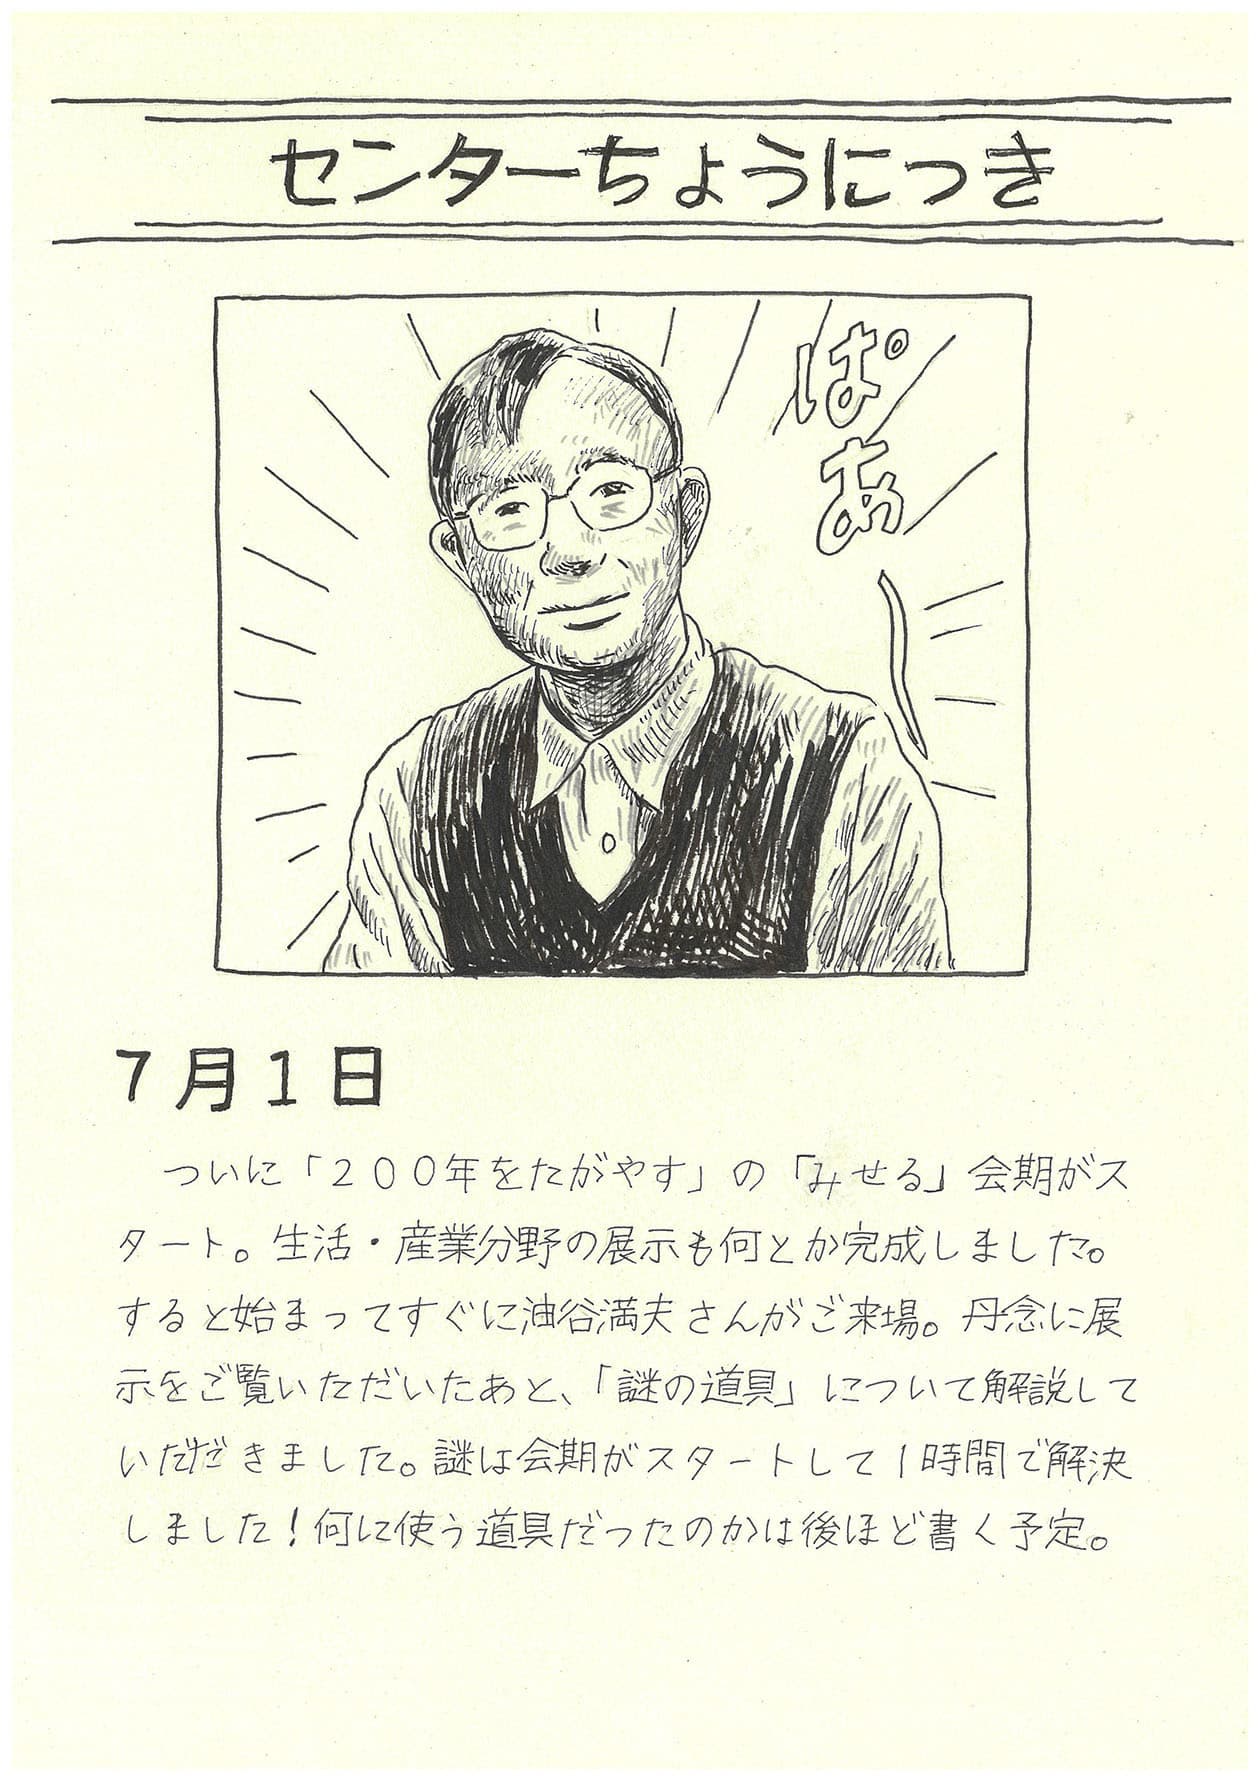 センターちょうにっき
ぱあー
7月1日
ついに「200年をたがやす」の「みせる」会期がス
タート。生活・産業分野の展示も何とか完成しました。
すると始まってすぐに油谷満夫さんがご来場。丹念に展
示をご覧いただいたあと、「謎の道具」について解説して
いただきました。謎は会期がスタートして1時間で解決
しました!何に使う道具だったのかは後ほど書く予定。